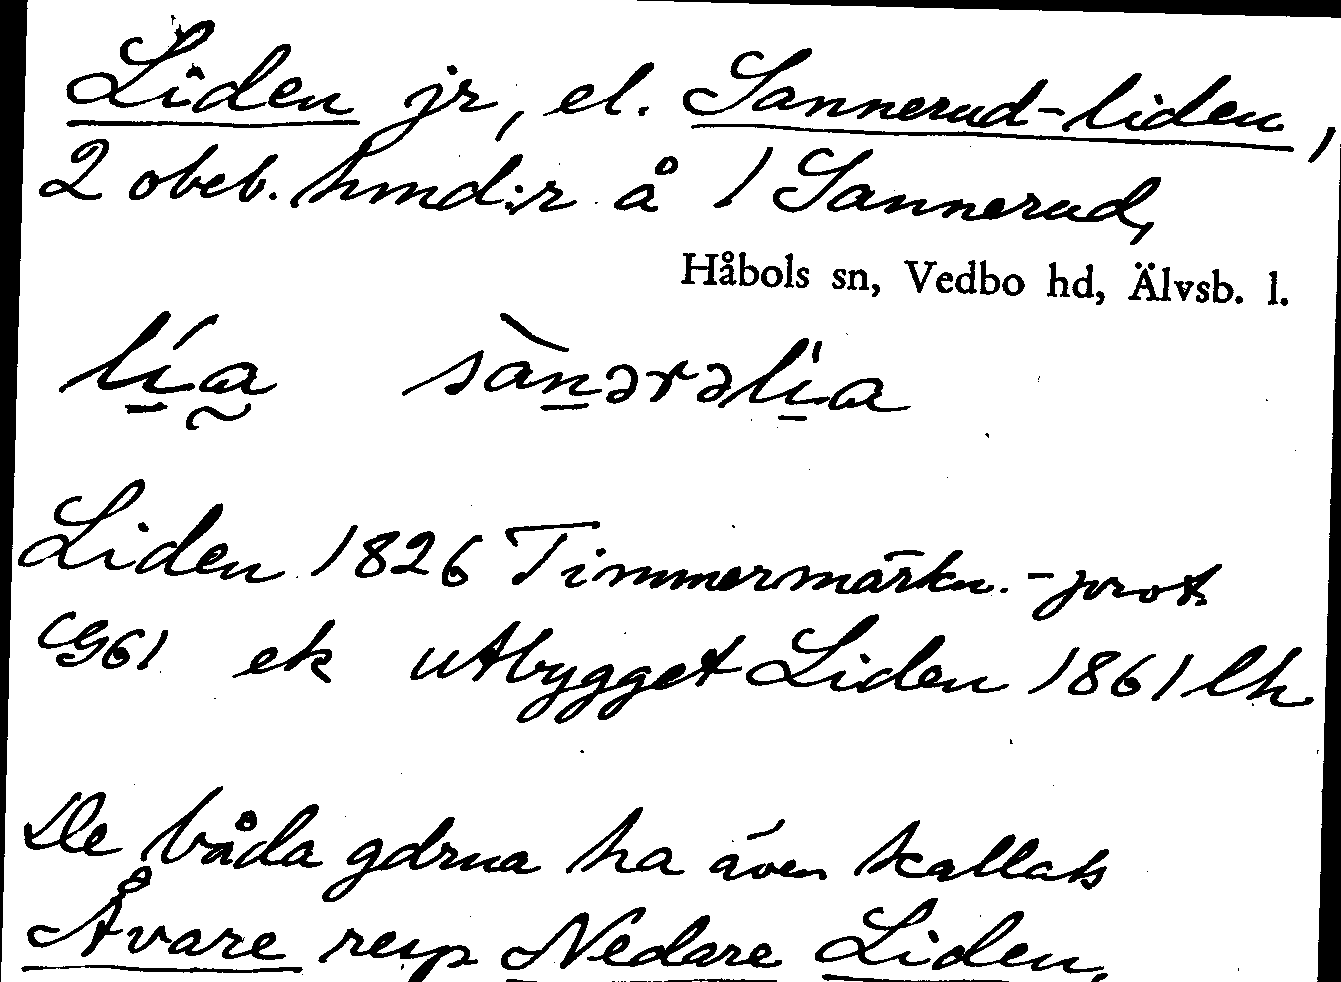 Liden jr, el. Sannerud-liden,
2 obeb. hmd:r å 1 Sannerud,
Håbols sn, Vedbo hd, Älvsb. l.
lí̠a̰ sàn̠ərəlì̠a
Liden 1826 Timmermärkn.-prot
G61 ek utbygget Liden 1861 lh
De båda gdrna ha även kallats
Åvare resp Nedare Liden.